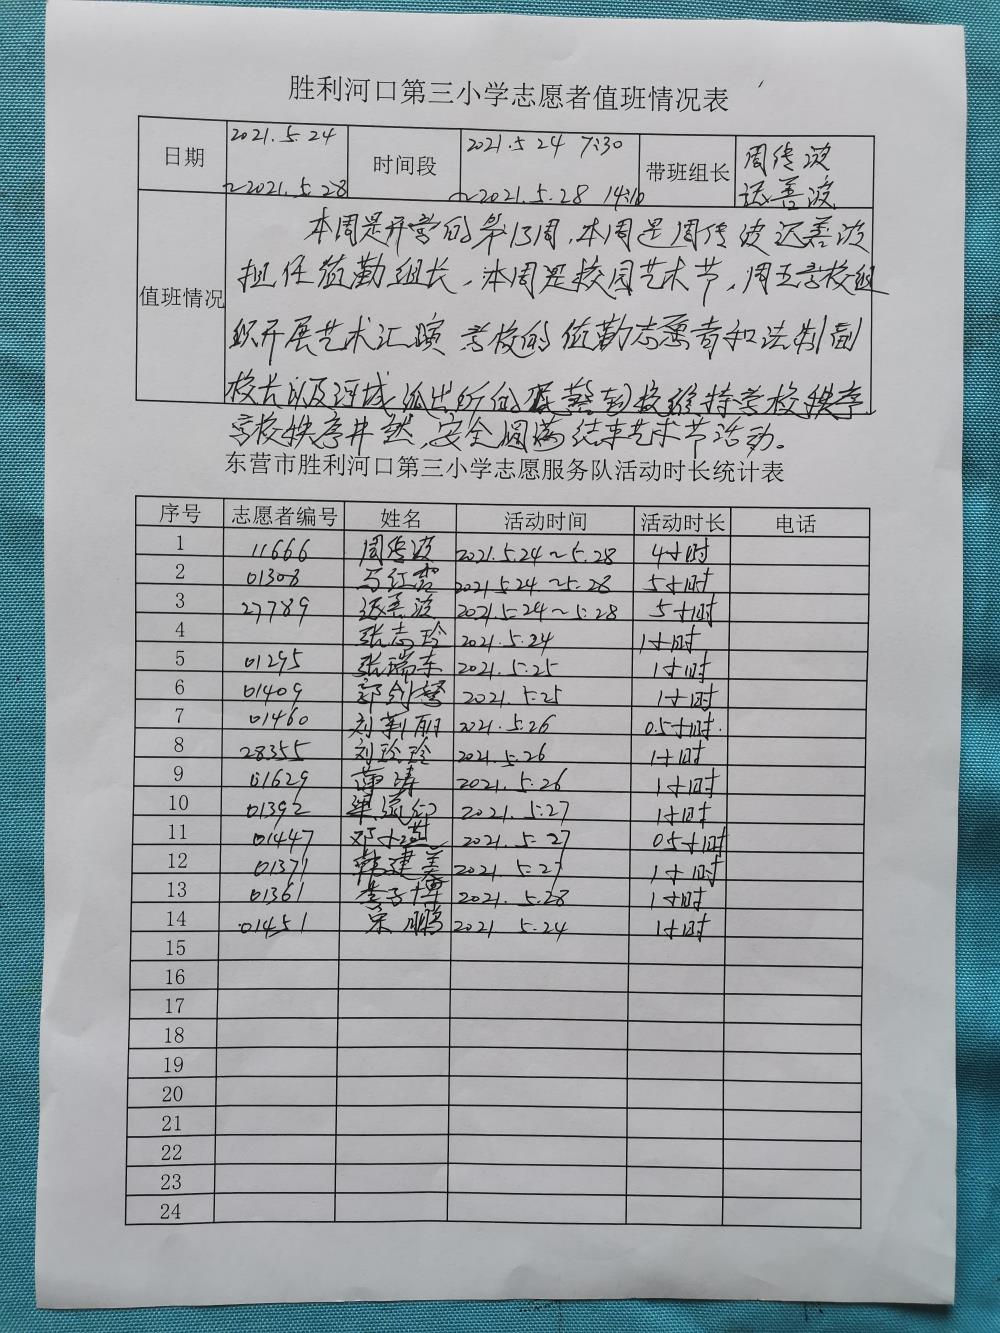 胜利河口第三小学志愿者值班情况表
日期 2021.5.24 ~2021.5.28 时间段 2021.5 24 7:30 ~2021.5.28 14:10 带班组长 周传波 迟善波
值班情况
本周是开学的第13周,本周是周传波迟善波
担任值勤组长,本周是校园艺术节,周五学校组
织开展艺术汇演 学校的值勤志愿者和法制副
校长以及 派出所的民警到校维持学校秩序,
学校秩序井然,安全圆满结束艺术节活动。
东营市胜利河口第三小学志愿服务队活动时长统计表
序号 志愿者编号 姓名 活动时间 活动时长 电话
1 11666 周传波 2021.5.24~5.28 4小时
2 01308 马红雷 2021 5.24 ~5.28 5小时
3 27789 迟善波 2021.5.24~5.28 5小时
4 张志玲 2021.5.24 1小时
5 01295 张瑞东 2021.5.25 1小时
6 01409 郭剑 2021.5.25 1小时
7 01460 刘新丽 2021.5.26 0.5小时.
8 28355 刘玲玲 2021.5.26 1小时
9 01629 涛 2021.5.26 1小时
10 01392 梁 2021.5.27 1小时
11 01447 邓小燕 2021.5.27 0.5小时
12 01371 韩建美 2021 5.27 1小时
13 01361 李子博 2021.5.28 1小时
14 01451 宋鹏 2021 5.24 1小时
15
16
17
18
19
20
21
22
23
24